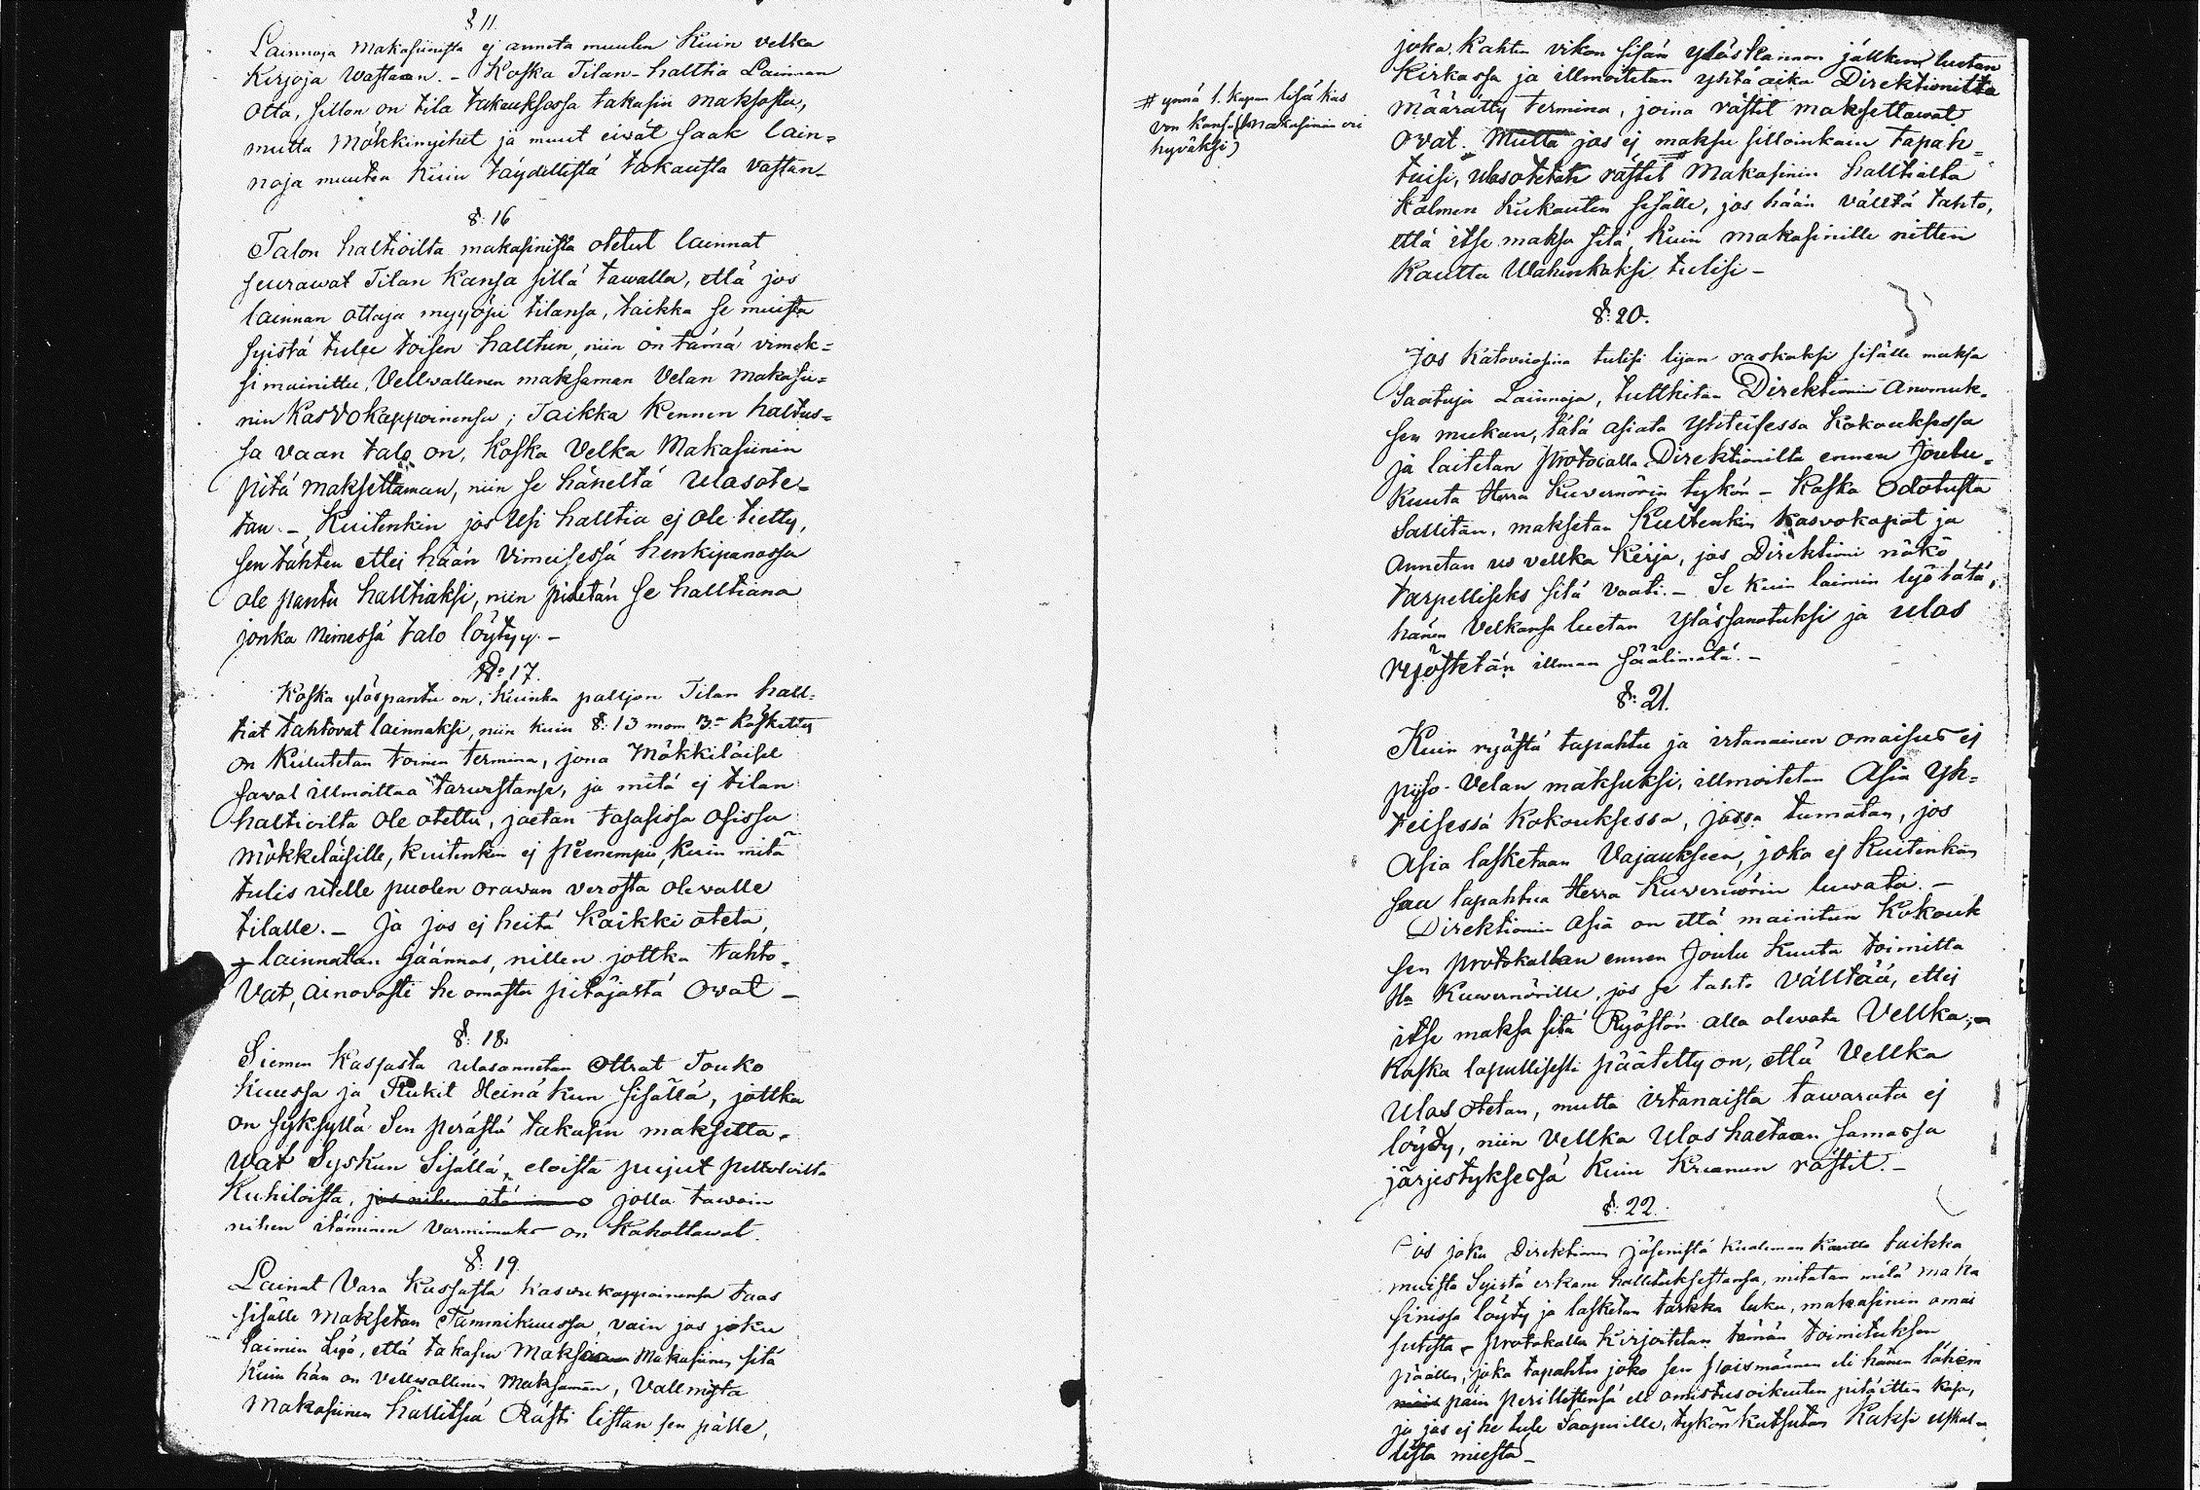 § 11
Lainnoja Makasiinista ej anneta muulen Kuin velka
kirjoja wastaan. - Koska Tilan-halttia Lainnan
otta, sillon on tila takauksessa takasin maksosta,
mutta Mökkimjehet ja muut eivät saak lain=
noja muuten Kuin täydellistä takausta vastan-
§: 16
Talon haltioilta makasinista otetut lainnat
seurawat Tilan Kansa sillä tawalla, että jos
lainnan ottaja myyöpi tilansa, taikka se muista
syistä tulee toisen halttun, niin on tämä vimek=
si mainittu, Vellwallinen maksaman Velan Makasii=
nin Kasvokappoinensa; Taikka Kennen haltus=
sa vaan talo on, Koska Velka Makasiinin
pitä maksettaman, niin se häneltä Ulasote=
tan. - Kuitenkin jos Usi halltia ej ole tietty,
sen tähten ettei hään Vimeisessä henkipanossa
ole pantu halltiaksi, niin pidetän se halltiana
jonka Nimessä talo löytyy. -
No: 17.
Koska yläspantu on, Kuinka palljon Tilan hall=
tiat tahtovat lainnaksi, niin kuin §: 13 mom B:a Käskettty
on Kuulutetan toinen termina, jona Mökkiläiset
saval illmoittaa tarwestansa, ja mitä ej tilan
haltioilta ole otettu, jaetan tasasissa osissa
Mökkeläisille, Kuitenkin ej pienempii, Kuin mitä
tulis uttelle puolen orawan verosta olevalle
tilalle. - Ja jos ej heitä Kaikki oteta,
lainnatan Jäännos, nillen jottka tahto=
Vat, ainovasti he omasta pitäjästä Ovat -
§: 18.
Siemen Kassasta Ulasannetan Ottrat Touko
Kuussa ja Rukit Heinä Kun sisällä, jottka
on syksyllä sen perästä takasin maksetta=
wat Syskun Sisällä, eloista pujut pelltoloilta
Kuhiloista, jolla tawoin
niken itäminen varmimaks on Kahottawat.
§: 19.
Lainat Vara Kassasta Kaswu kappoinensa taas
sisälle Maksetan Tammikuussa, vain jos joku
Laimin Lyö, että takasin Maksaa Makasiinin sitä
Kuin hän on Vellwollinen Maksamän, Vallmista
Makasiinin hallitsia Rästi listan sen pälle,
# ynnä 1. Kapan lisä Kas
von Kansa (Makasinin eri
hyväksi)
joka. Kahten vikon sisän yläskannon jällken, luetan
Kirkossa ja illmoitetan yhtä aika Direktionilta
Määrätty termina, joina rästit maksettawat
Ovat. Mutta jos ej maksu silloinkaan tapah=
tuisi, ulosotetan rästit Makasinin halltialta
Kolmen Kukauten sisälle, jos hään välltä tahto,
että itse maksa sitä, Kuin makasinille nitten
Kautta Wahinkoksi tulisi -
§: 20.
Jos Katovuosina tulisi lijan raskaksi sisälle maksa
Saatuja Lainnoja, tuttkitan Direktionin Anomuk=
sen mukan, tätä asiata Yhteisessa Kokouksessa
ja laitetan protocolla Direktionilta ennen Joulu=
Kuuta Herra Kuvernörin tykön - Koska Odotusta
Sallitan, maksetan Kuitenkin Kasvokapat ja
annetan us vellka Kirja, jos Direktioni näkö
tarpelliseks sitä vaati. - Se kuin laimin lyö tätä,
hänen Velkansa luetan Yläs sanotuksi ja ulos
ryöstetän illman säälimätä. -
§: 21.
Kuin ryöstä tapahtu ja irtanainen omaisus ej
piiso Velan maksuksi, illmoitetan Asia Yh=
teisessä Kokouksessa, jossa tumatan, jos
Asia lasketaan Vajaukseen, joka ej Kuitenkan
saa tapahtua Herra Kuvernörin luwata. -
Direktionin Asia on että mainitun Kokouk
sen protokollan ennen Joulu Kuuta toimitta
Hra Kuwernörille, jos se tahto Vällttää, ettej
itse maksa sitä Ryöstön alla olevata Vellka; -
Koska lapullisesti päätetty on, että Vellka
Ulos otetan, mutta irtanaista tawarata ej
löydy, niin Vellka Ulos haetaan samassa
järjestyksessä Kuin Kruunun rästit. -
§: 22.
Jos joku Direktionin jäsenistä Kualeman Kautta taikka
muista Syistä erkane hallituksestansa, mitatan mitä maka
sinissa löyty ja lasketan tarkka luku, makasinin omai
sutesta, protokolla Kirjoitetan tämän toimituksen
päälle, joka tapahtu joko sen poismännen eli hänen lähim
päin perillistensä eli omistusoikeuten pitäitten kasa,
ja jos ej he tule Saapuville, tykön kutsutan Kaksi uskal=
lista miestä -